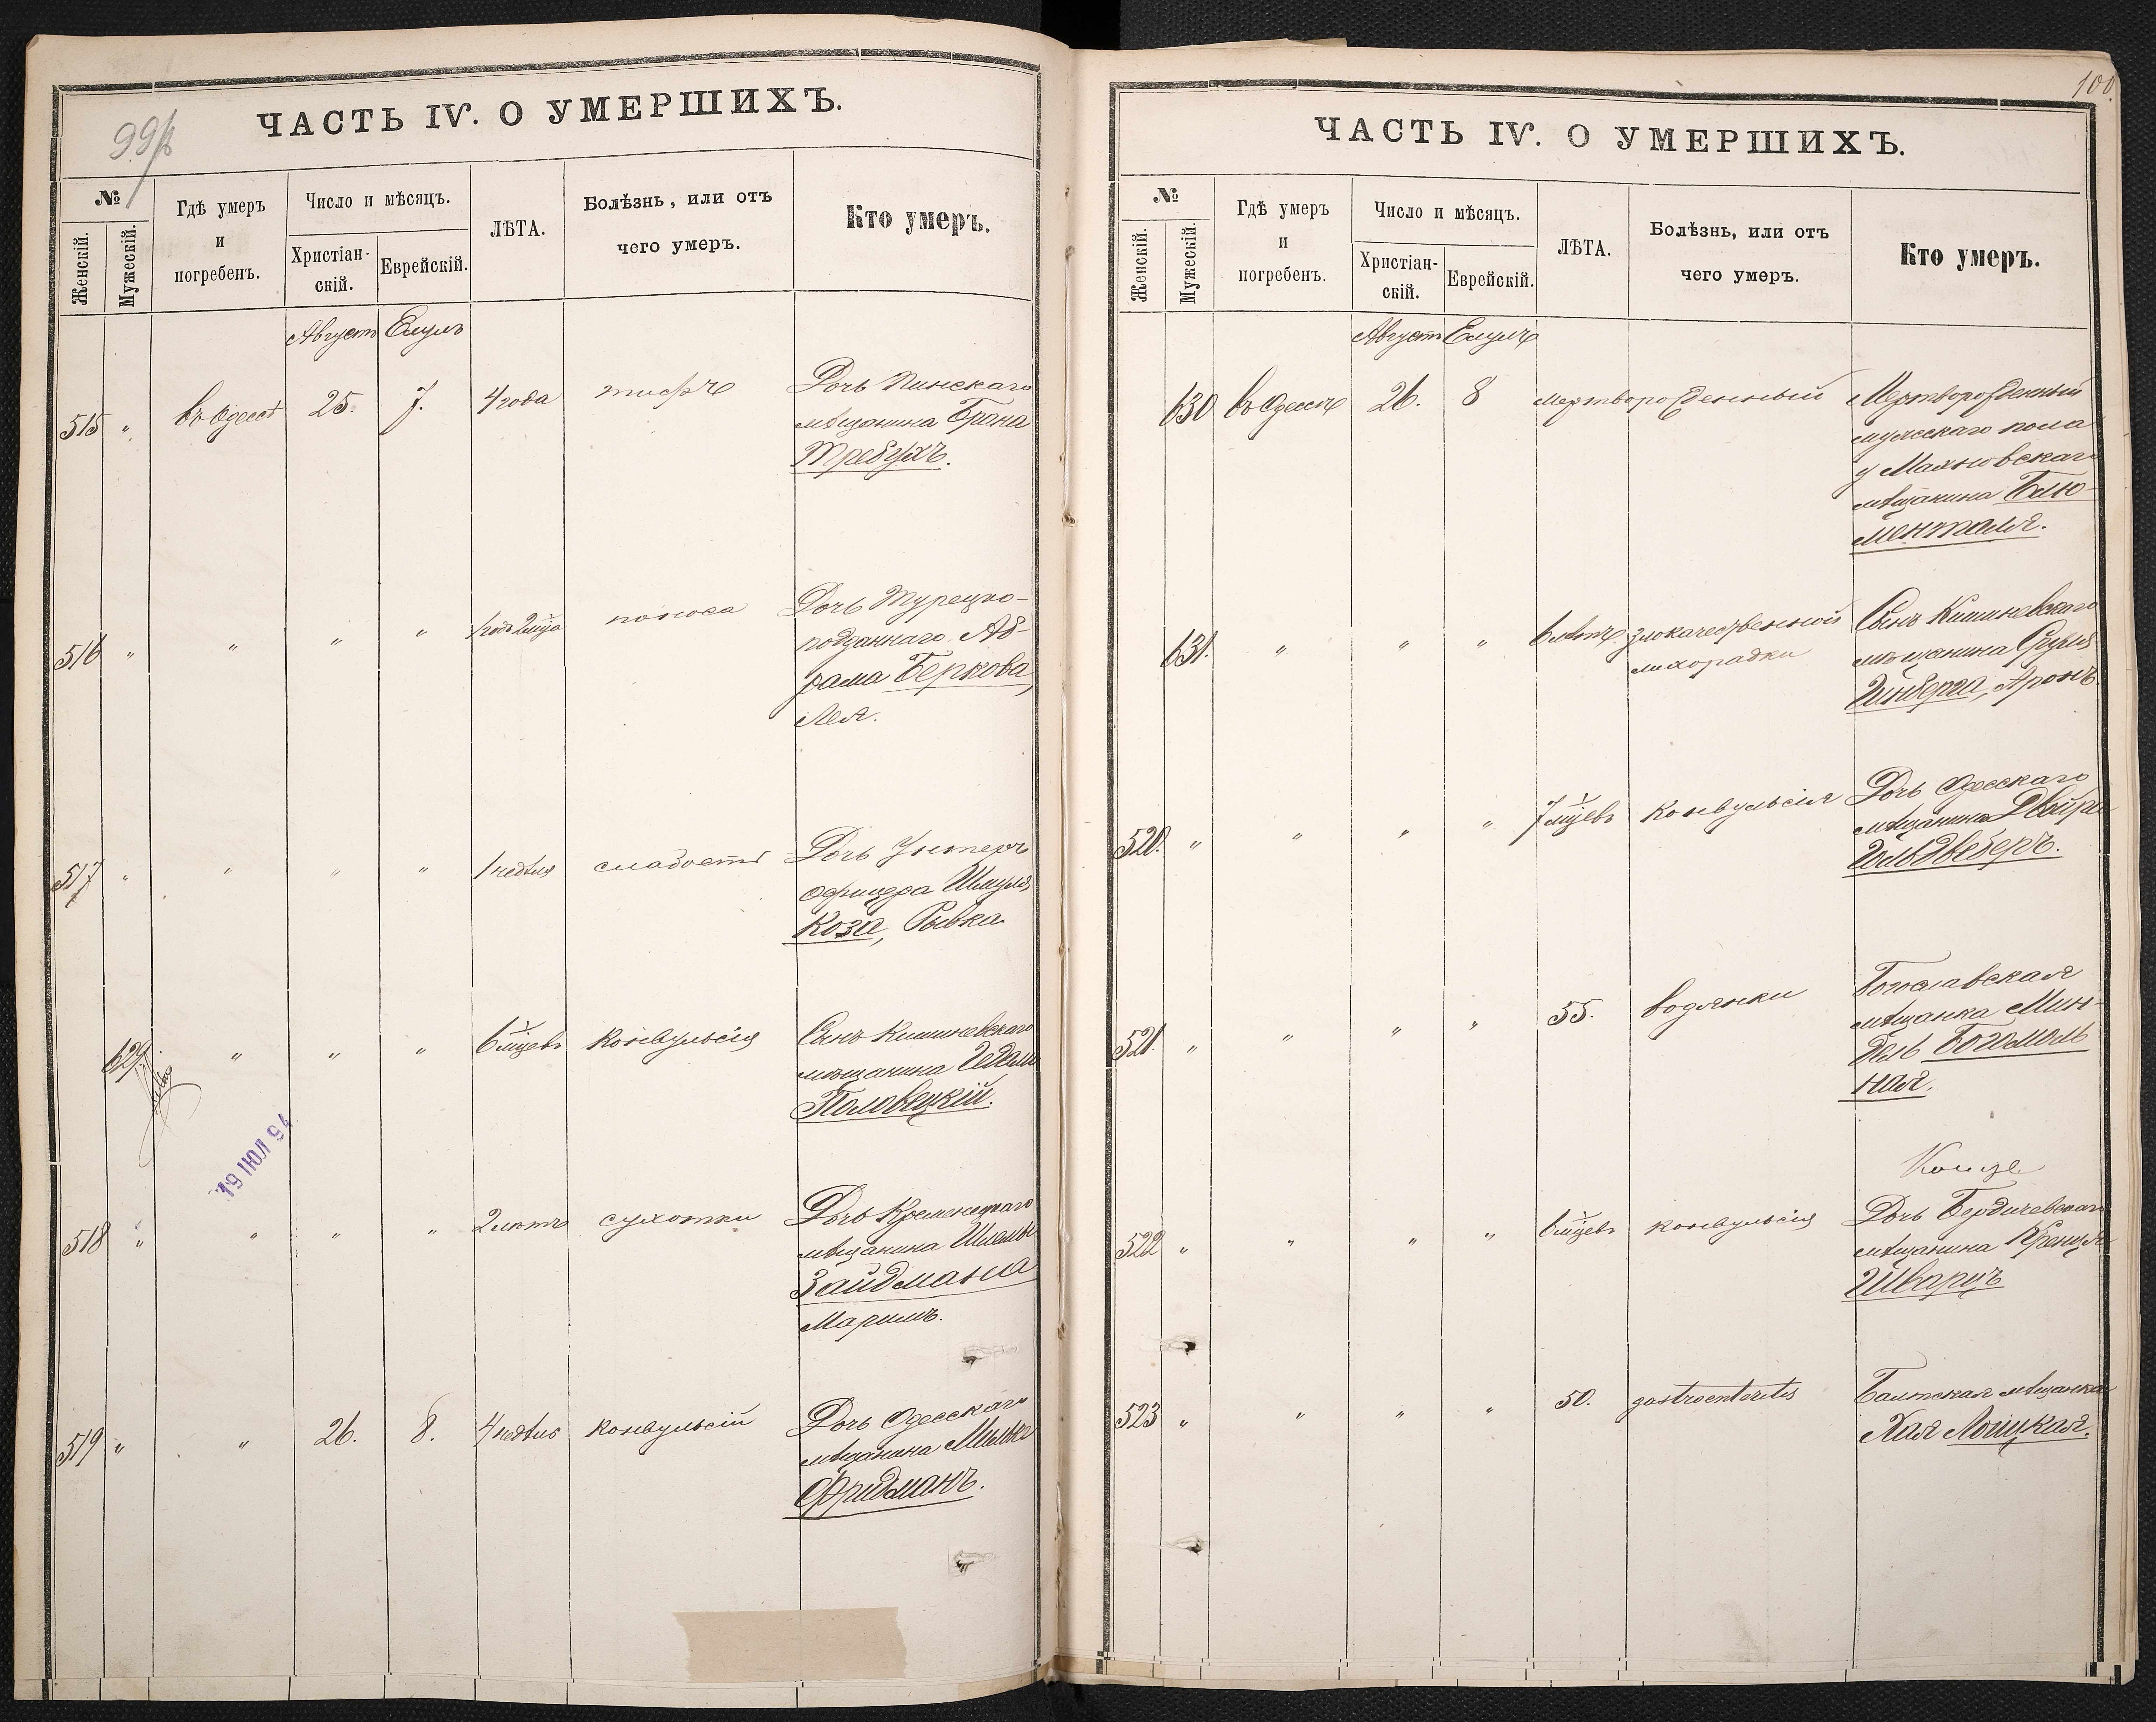 99/2
ЧАСТЬ IV. О УМЕРШИХЪ.
№
Женскій.
Мужескій.
Гдѣ умеръ
и
погребенъ.
Число и мѣсяцъ.
Христіан-
скій.
Еврейскій.
ЛѢТА.
Болѣзнь, или отъ
чего умеръ.
Кто умеръ.
Августъ Елулъ
515 " въ Одессѣ 25. 7. 4 года тифъ Дочь Пинскаго
мѣщанина Брана
Требухъ.
516 " " " " 1 годъ 2 мѣца поноса Дочь Турецко-
подданнаго Аб-
рама Беркова,
Лея.
517 " " " " 1 недѣля слабости Дочь Унтеръ
офицера Шмуля
Коза, Рывка
629. " " " 6 мцевъ конвульсія Сынъ Кишиневскаго
мѣщанина Гедаля
Половецкій.
19 ІЮЛ 94
518 " " " " 2 лѣтъ сухотки Дочь Кременецкаго
мѣщанина Шлемы
Зайдмана
Маримъ.
519 " " 26. 8. 4 недѣль конвульсій Дочь Одесскаго
мѣщанина Мильки
Фридманъ.
100.
ЧАСТЬ IV. О УМЕРШИХЪ.
№
Женскій.
Мужескій.
Гдѣ умеръ
и
погребенъ.
Число и мѣсяцъ.
Христіан-
скій.
Еврейскій.
ЛѢТА.
Болѣзнь, или отъ
чего умеръ.
Кто умеръ.
Августъ Елулъ
630 въ Одессѣ 26. 8 мертворожденный Мертворожденный
мужескаго пола
у Махновскаго
мѣщанина Блю-
менталя.
631. " " " 6 лѣтъ злокачественной Сынъ Кишиневскаго
лихорадки мѣщанина Сруля
Гинберга, Аронъ
520. " " " " 7 мцевъ конвульсія Дочь Одесскаго
мѣщанина Двойра
Гольдвеберъ.
521. " " " " 55. водянки Богославская
мѣщанка Мин-
дель Богомоль
ная.
522 " " " " 6 мцевъ конвульсія Дочь Бердичевскаго
мѣщанина Кренця
Шварцъ
523 " " " " 50. gastroenteritis Балтская мѣщанка
Хая Лошцкая.